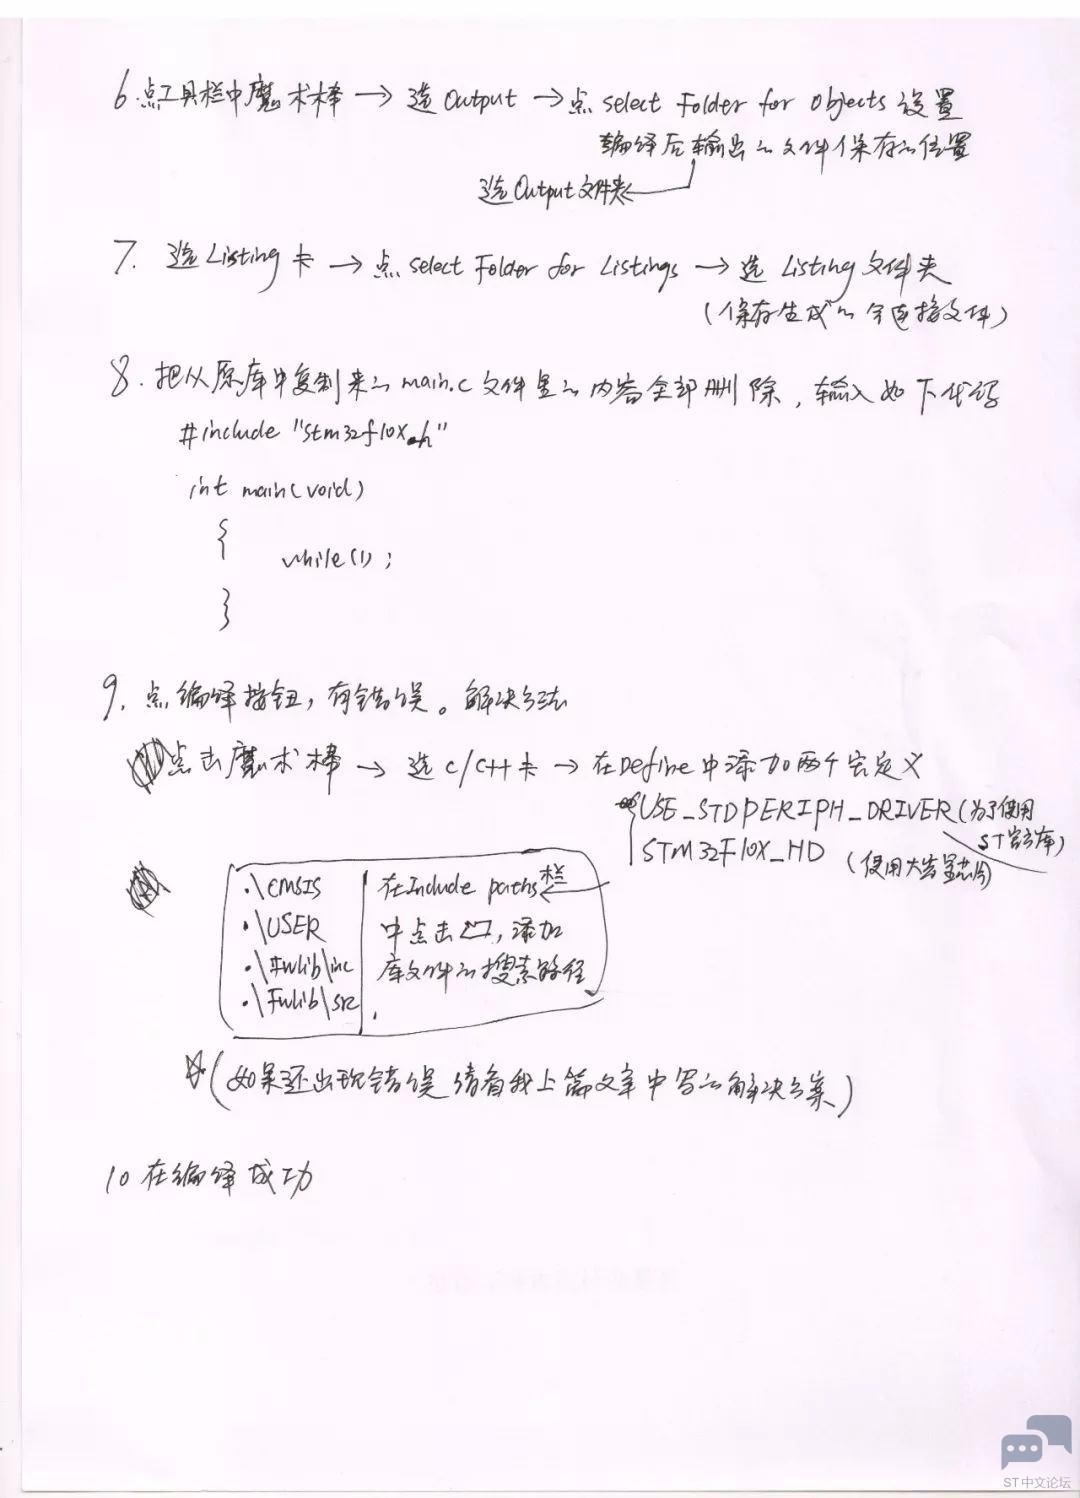 6.点工具栏中魔术棒→选Output→点select Folder for Objects设置
编译后输出的文件保存的位置
选Output文件夹
7. 选Listing卡→点select Folder for Listings→选Listing文件夹
(保存生成的连接文件)
8.把从原库中复制来的main.c文件里的内容全部删除,输入如下代码
#include "stm32f10x.h"
int main(void)
{
while(1);
}
9.点编译按钮,有错误。解决方法
点击魔术棒→选C/C++卡→在Define中添加两个宏定义
USE_STDPERIPH_DRIVER(为了使用
ST官方库)
STM32F10X_HD (使用大容量芯片)
.\CMSIS 在Include paths栏
.\USER 中点击,添加
.\Fwlib\inc 库文件的搜索路径
.\Fwlib\src
(如果还出现错误请看我上篇文章中写的解决方案)
10在编译成功
ST中文论坛